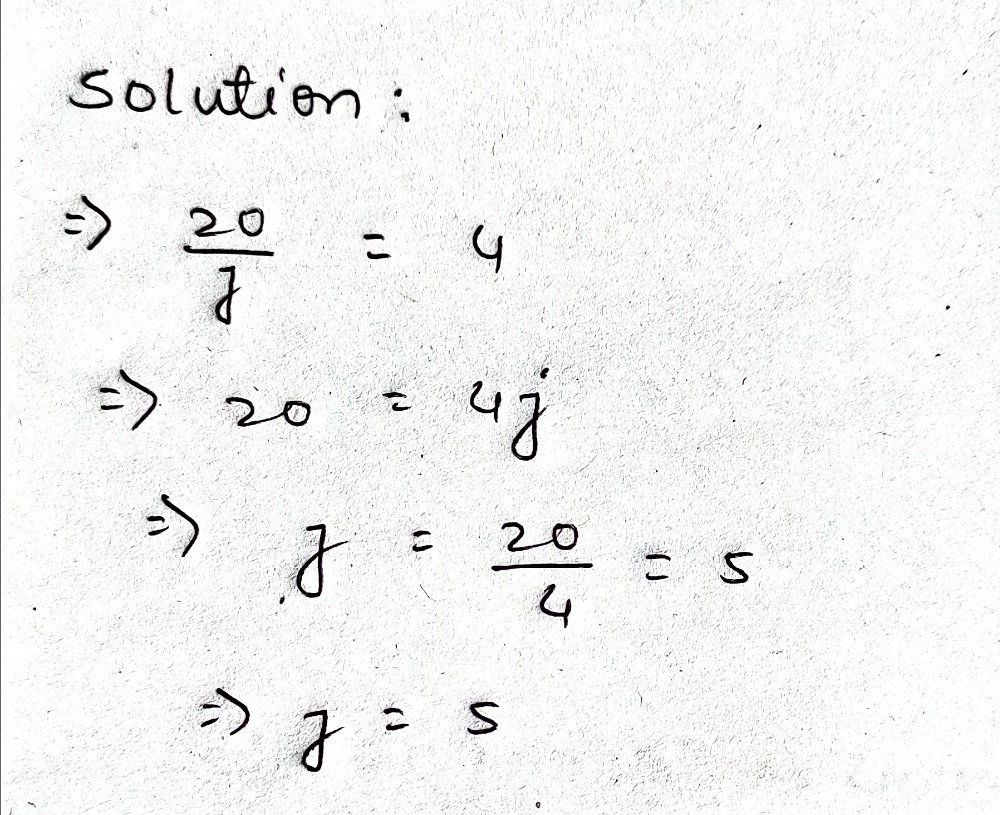 Solution :
=> 20/j = 4
=> 20 = 4j
=> j = 20/4 = 5
=> j = 5